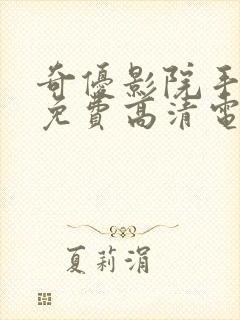 奇優影院手
免費高清電
夏莉涓